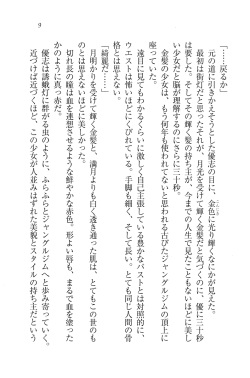 9
「……戻るか」
元の道に引きかえそうとした優志の目に、金色に光り輝くなにかが見えた。
最初は街灯だと思ったそれが、月光を受けて輝く金髪だと気づくのに、優に三十秒
は要した。そしてその輝く髪の持ち主が、今までの人生で見たこともないほどに美し
い少女だと脳が理解するのにさらに三十秒。
金髪の少女は、もう何年も使われてないらしい、古びたジャングルジムの頂上に
座っていた。
遠目に見てもわかるくらいに激しく自己主張している豊かなバストとは対照的に、
ウエストは怖いほどにくびれている。手脚も細く、そして長い。とても同じ人間の骨
格とは思えない。
「綺麗だ……」
月明かりを受けて輝く金髪と、満月よりも白く透き通った肌は、とてもこの世のも
のとは思えないほどに美しかった。
切れ長の瞳は血を連想させるような鮮やかな赤色。形よい唇も、まるで血を塗った
かのように真っ赤だ。
優志は誘蛾灯に群がる虫のように、ふらふらとジャングルジムへと歩み寄っていく。
近づけば近づくほど、この少女が人並みはずれた美貌とスタイルの持ち主だという